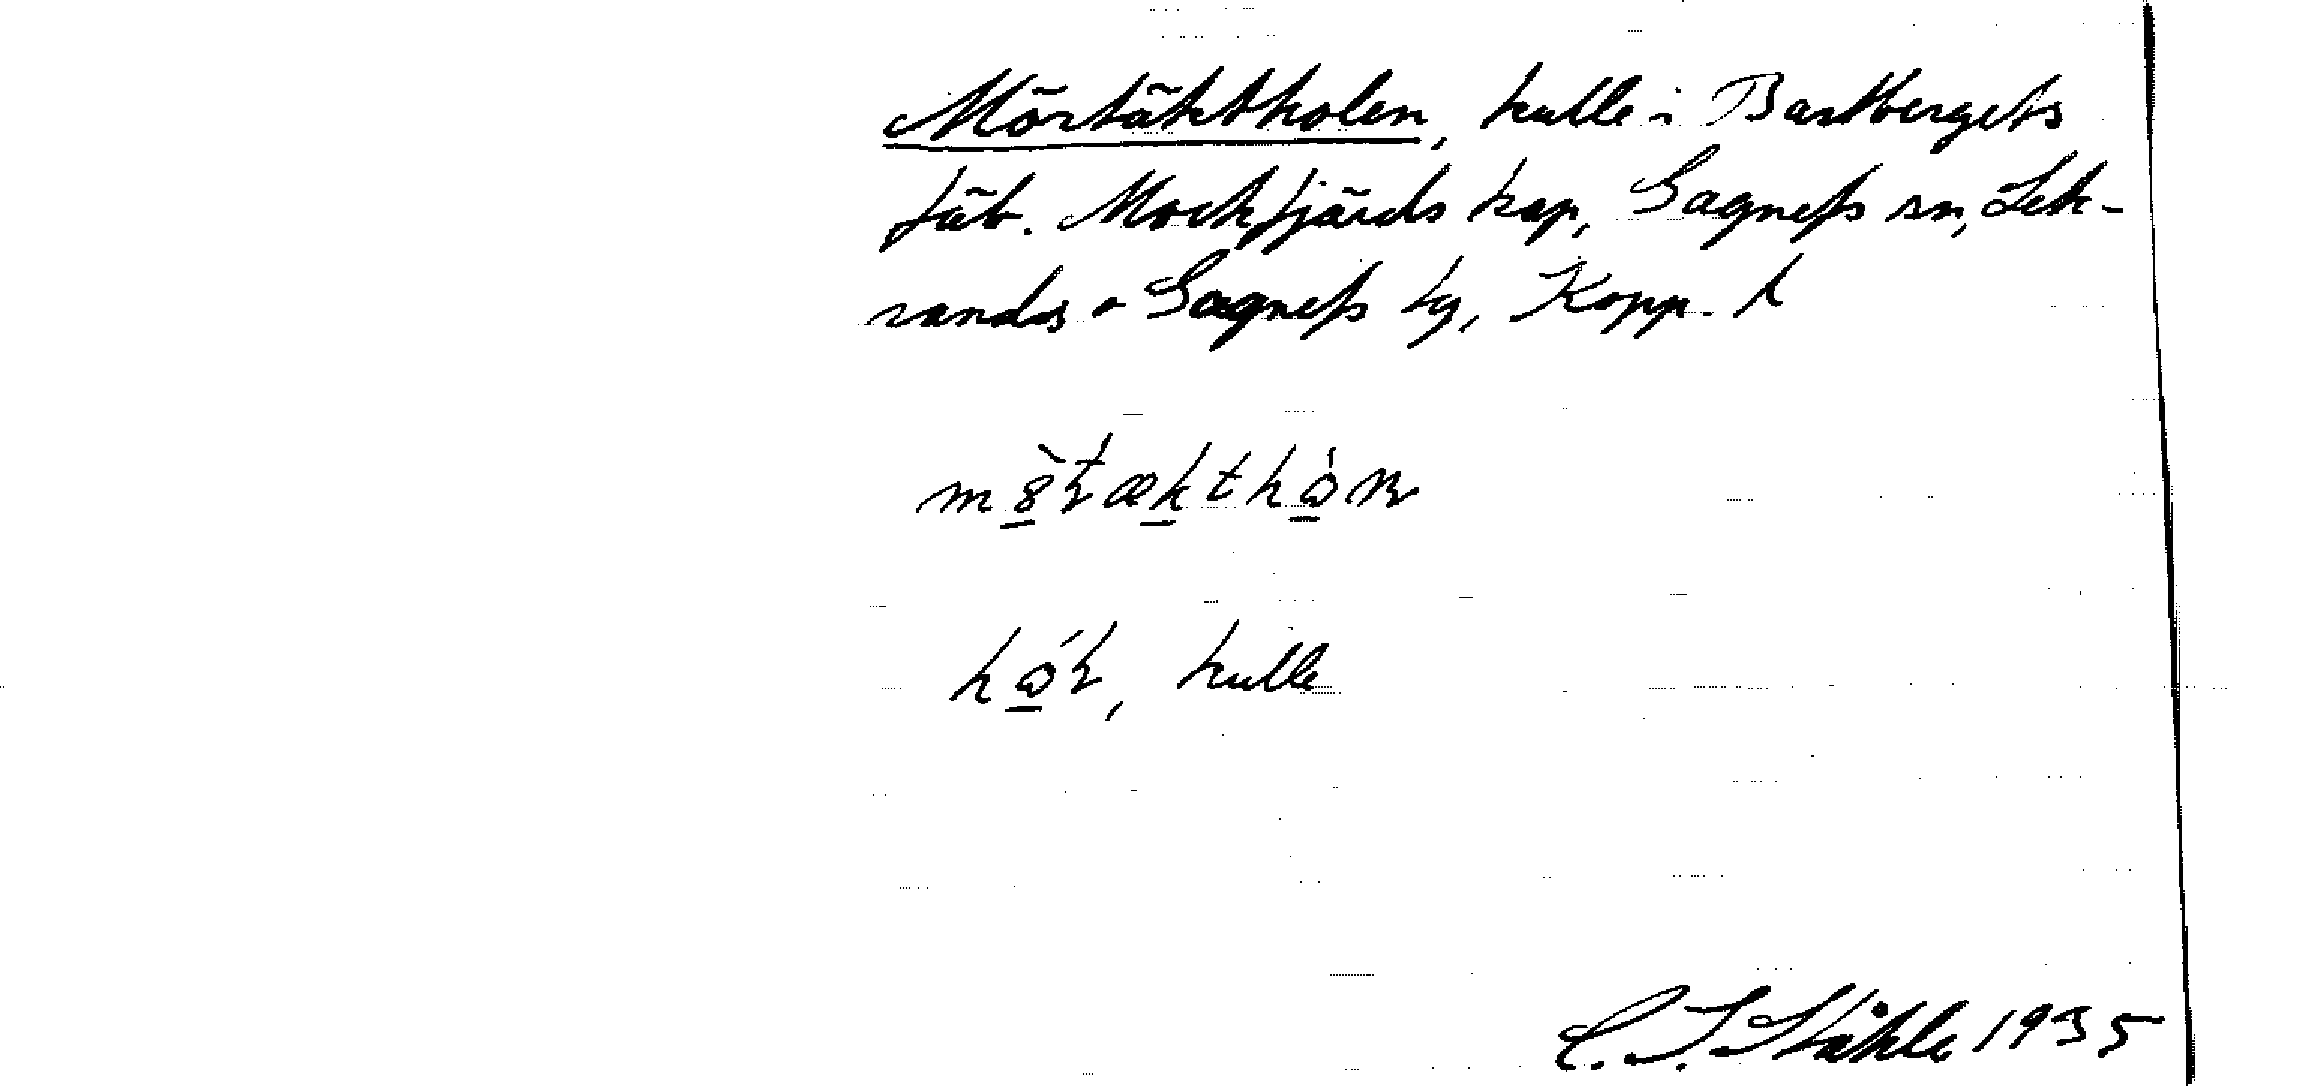 Mörtäktholen, kulle i Bastbergets
fäb. Mockfjärds kap, Gagnefs sn, Lek-
sands o Gagnefs tg, Kopp. l
kulle
C. I. Ståhle 1935